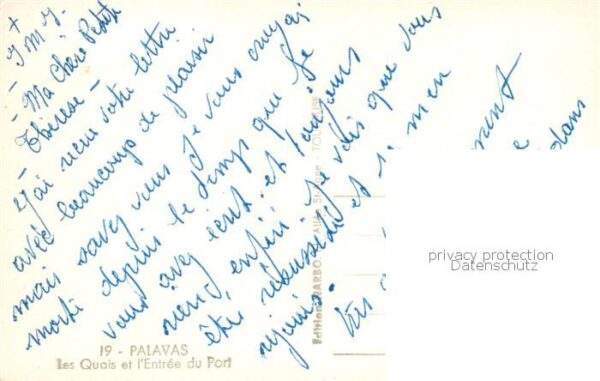 +
J M J
- Ma Chère Petite
Thérèse -
J'ai reçu votre lettre
avec beaucoup de plaisir
mais savez vous je vous croyais
morte depuis le temps que je
vous avez écrit et toujours
rien enfin je vois que vous
êtes et m'en
réjouis.
dans
19 - PALAVAS
Les Quais et l'Entrée du Port
privacy protection
Datenschutz